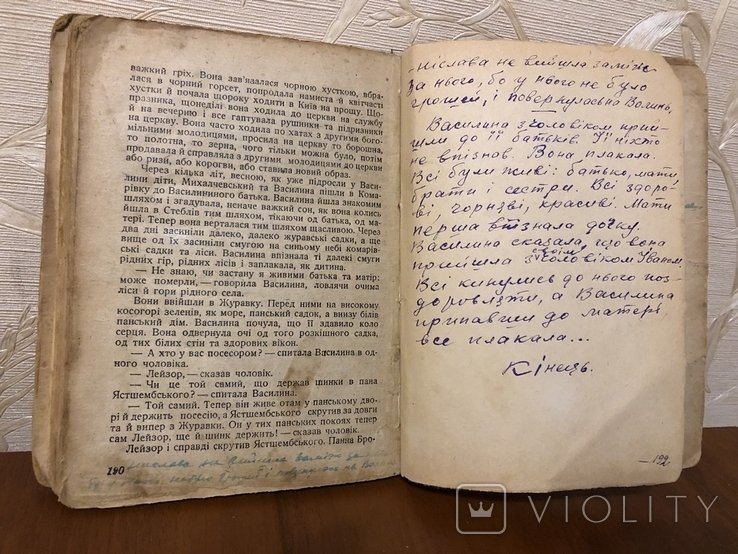 важкий гріх. Вона зав'язалася чорною хусткою, вбра-
лася в чорний горсет, попродала намиста й квітчасті
хустки й почала щороку ходити в Київ на прощу. Що-
празника, щонеділі вона ходить до церкви на службу
й на вечерню і все гаптувала рушники та підризники
на церкву. Вона часто ходила по хатах з другими бого-
мільними молодицями, просила на церкву то борошна,
то полотна, то зерна, чого тільки можна було, потім
продавала й справляла з другими молодицями до церкви
або ризи, або корогви, або ставила новий образ.
Через кілька літ, весною, як уже підросли у Васи-
лини діти, Михалчевський та Василина пішли в Кома-
рівку до Василининого батька. Василина йшла знакомим
шляхом і згадувала, неначе важкий сон, як вона колись
йшла в Стеблів тим шляхом, тікаючи од батька, од ма-
тері. Тепер вона верталася тим шляхом щасливою. Через
два дні засиніли далеко, далеко журавські садки, а ще
вище од їх засиніли смугою на синьому небі комарів-
ські садки та ліси. Василина впізнала ті далекі смуги
рідних гір, рідних лісів і заплакала, як дитина.
— Не знаю, чи застану я живими батька та матір:
може померли, — говорила Василина, ловлячи очима
ліси й гори рідного села.
Вони ввійшли в Журавку. Перед ними на високому
косогорі зеленів, як море, панський садок, а внизу білів
панський дім. Василина почула, що її здавило коло
серця. Вона одвернула очі од того розкішного садка,
од тих білих стін та здорових вікон.
— А хто у вас посесором? — спитала Василина в од-
ного чоловіка.
— Лейзор, — сказав чоловік.
— Чи це той самий, що держав шинки в пана
Ястшембського? — спитала Василина.
— Той самий. Тепер він живе отам у панському дво-
рі й держить посесію, а Ястшембського скрутив за довги
та й випер з Журавки. Он у тих панських покоях тепер
сам Лейзор, ще й шинк держить! — сказав чоловік.
Лейзор і справді скрутив Ястшембського. Панна Бро-
190
ніслава не вийшла заміж за
-ніслава не вийшла заміж
за нього, бо у нього не було
грошей, і повернулась на Волинь,
Василина з чоловіком прий-
шли до її батьків. Її ніхто
не впізнав. Вона плакала.
Всі були живі: батько, мати,
брати і сестри. Всі здоро-
ві, чорняві, красиві. Мати
перша впізнала дочку.
Василина сказала, що вона
прийшла з своїм чоловіком Іваном.
Всі кинулись до нього поз-
доровляти, а Василина
припавши до матері
все плакала...
Кінець.
-192
VIOLITY